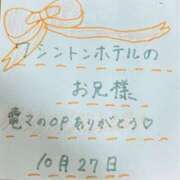 ワシントンホテルの
お兄様
竜マのOPありがとう♡
10月27日